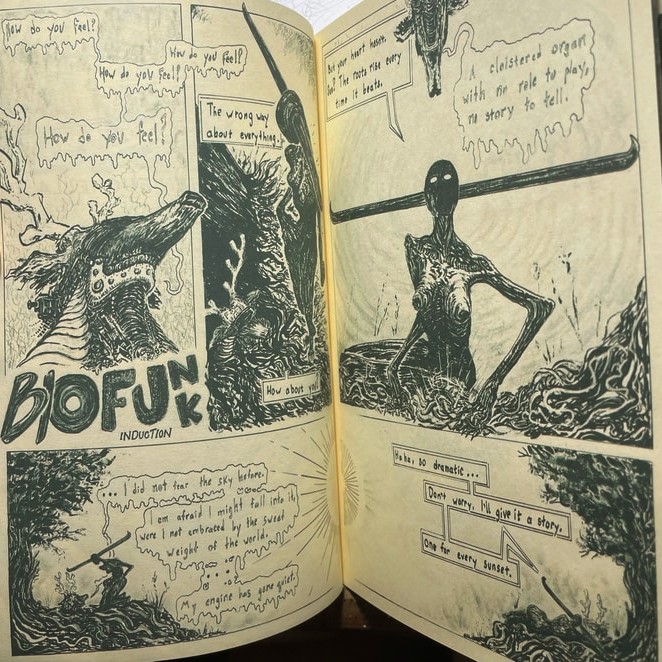 How do you feel?
How do you feel?
How do you feel?
How do you feel?
The wrong way
about everything.
How about you?
BIOFUNK
INDUCTION
But your heart hasn't.
See? The roots rise every
time it beats.
A cloistered organ
with no role to play,
no story to tell.
... I did not fear the sky before.
I am afraid I might fall into it,
were I not embraced by the sweat
weight of the world.
...
My engine has gone quiet.
Haha, so dramatic...
Don't worry, I'll give it a story.
One for every sunset.